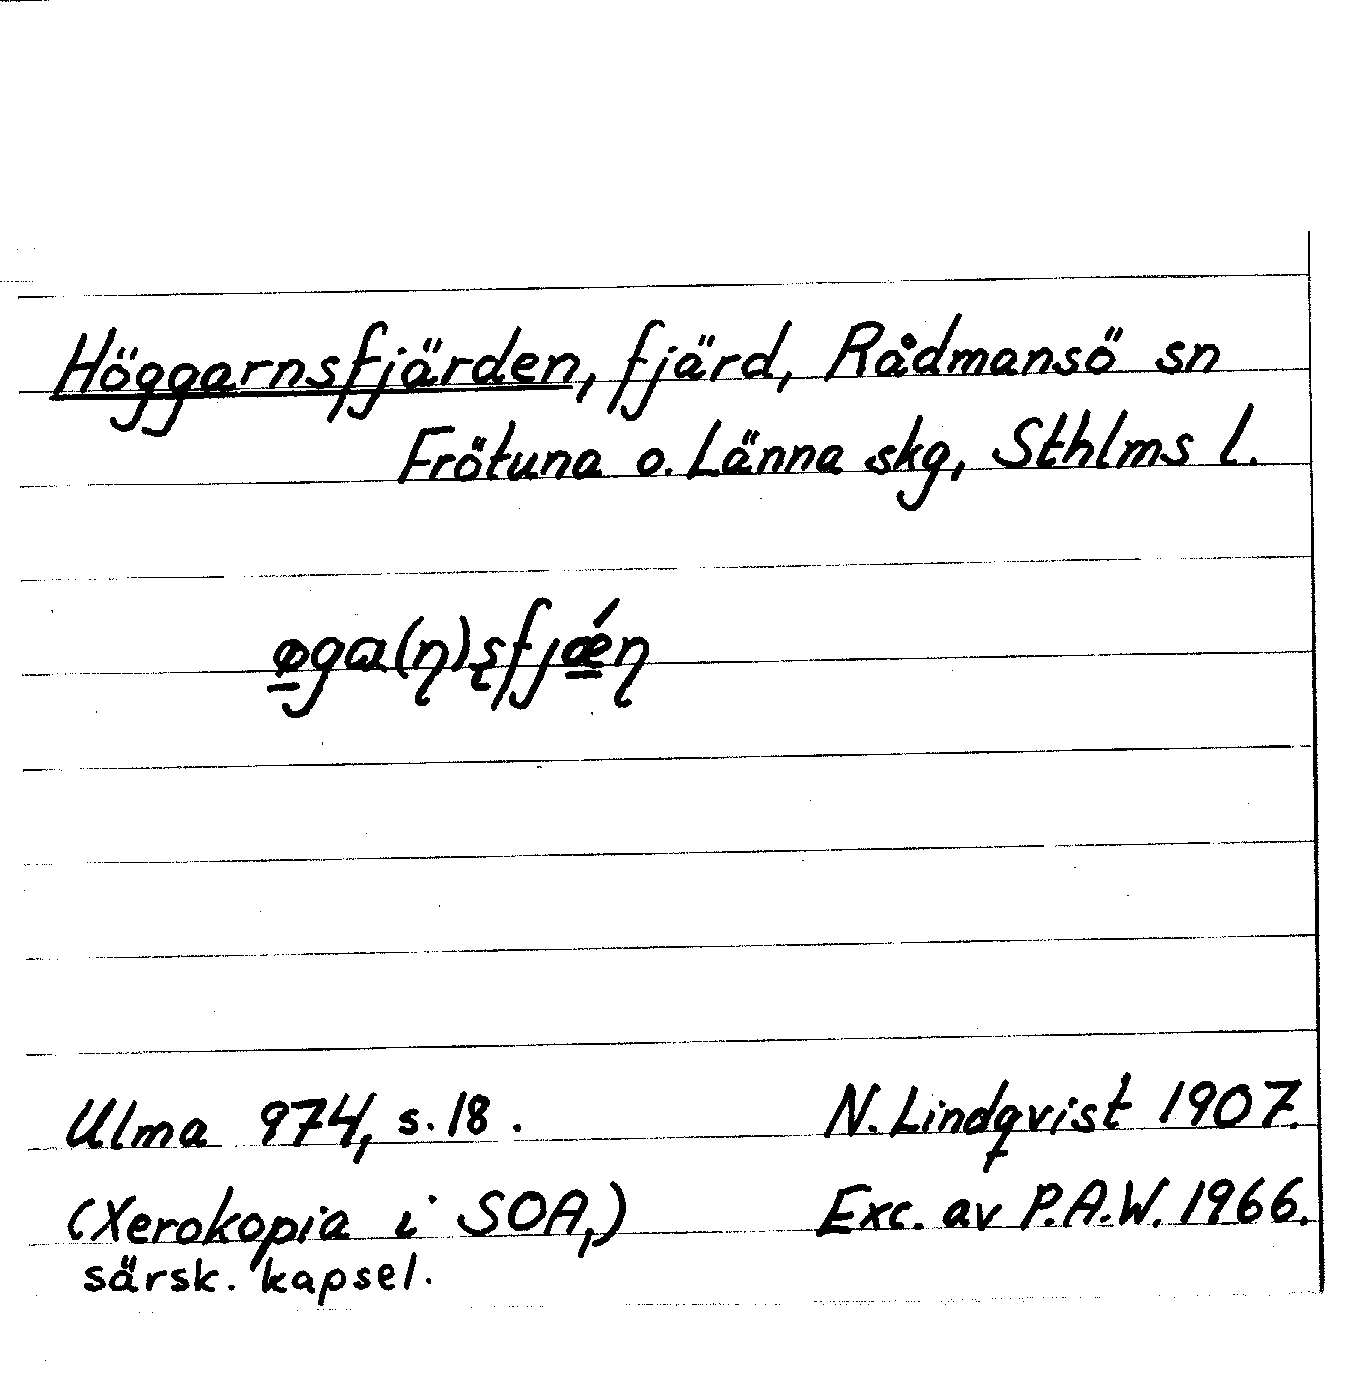 Höggarnsfjärden, fjärd, Rådmansö sn
Frötuna o. Länna skg, Sthlms l.
ø̲ga(ɳ)ʂfjǽ̲ɳ
Ulma 974, s. 18.
N. Lindqvist 1907.
(Xerokopia i SOA,)
Exc. av P.A.W. 1966.
särsk. kapsel.